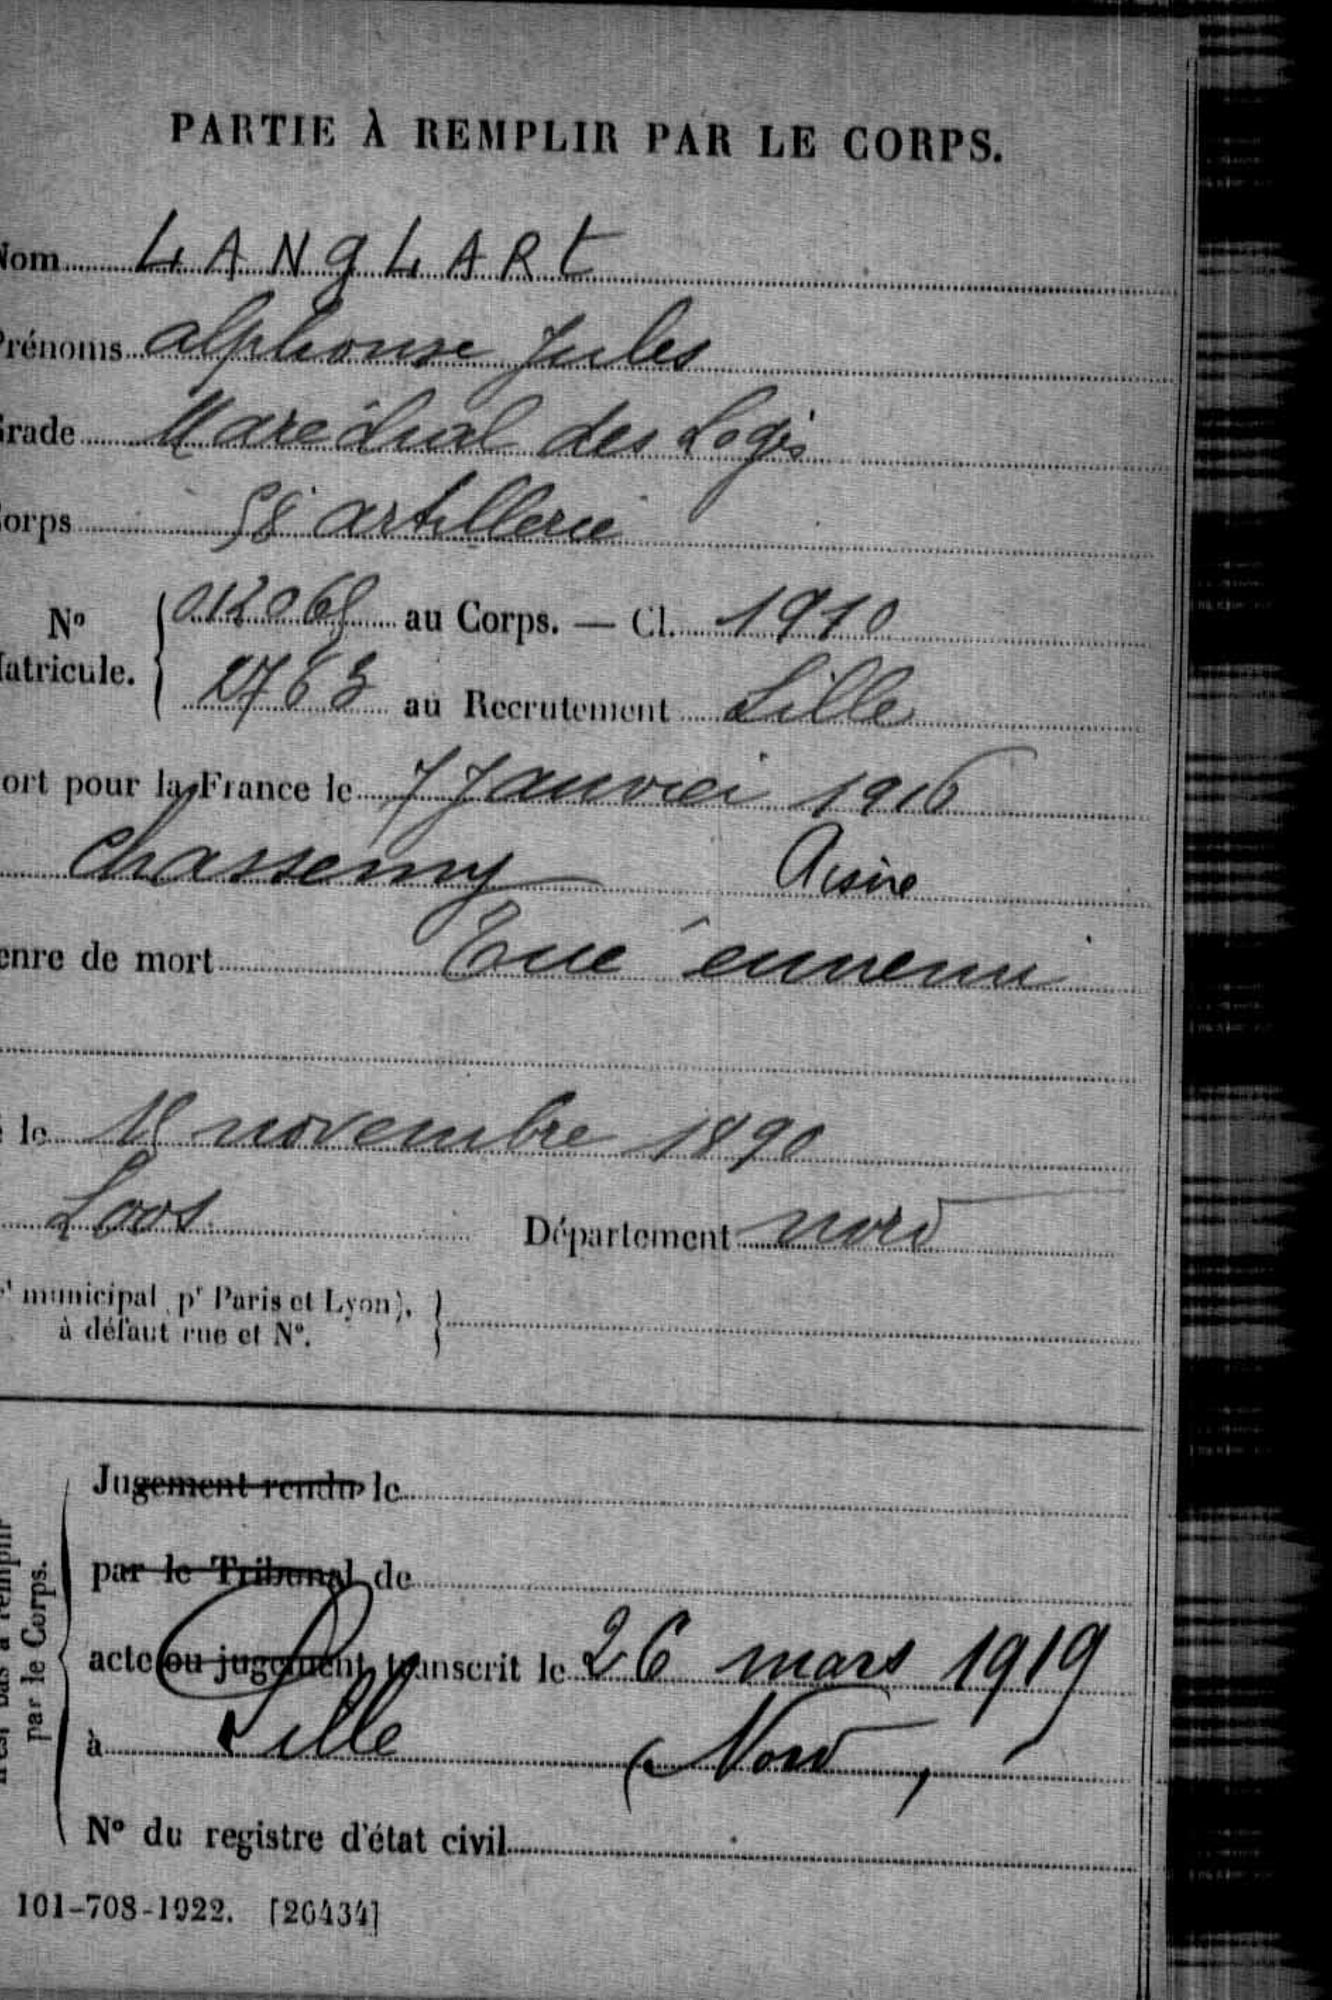 PARTIE À REMPLIR PAR LE CORPS.
Nom LANGLART
Prénoms Alphonse Jules
Grade Maréchal des Logis
Corps 58 artillerie
N° Matricule. { 012068 au Corps. — Cl. 1910
2763 au Recrutement Lille
ort pour la France le 7 Janvier 1916
Chassemy Aisne
enre de mort Tué ennemi
le 18 novembre 1890
Loos Département Nord
r municipal pr Paris et Lyon),
à défaut rue et N°.
Jugement rendu le
par le Tribunal de
acte ou jugement transcrit le 26 mars 1919
à Lille (Nord)
N° du registre d'état civil
par le Corps.
101-708-1922. [26434]